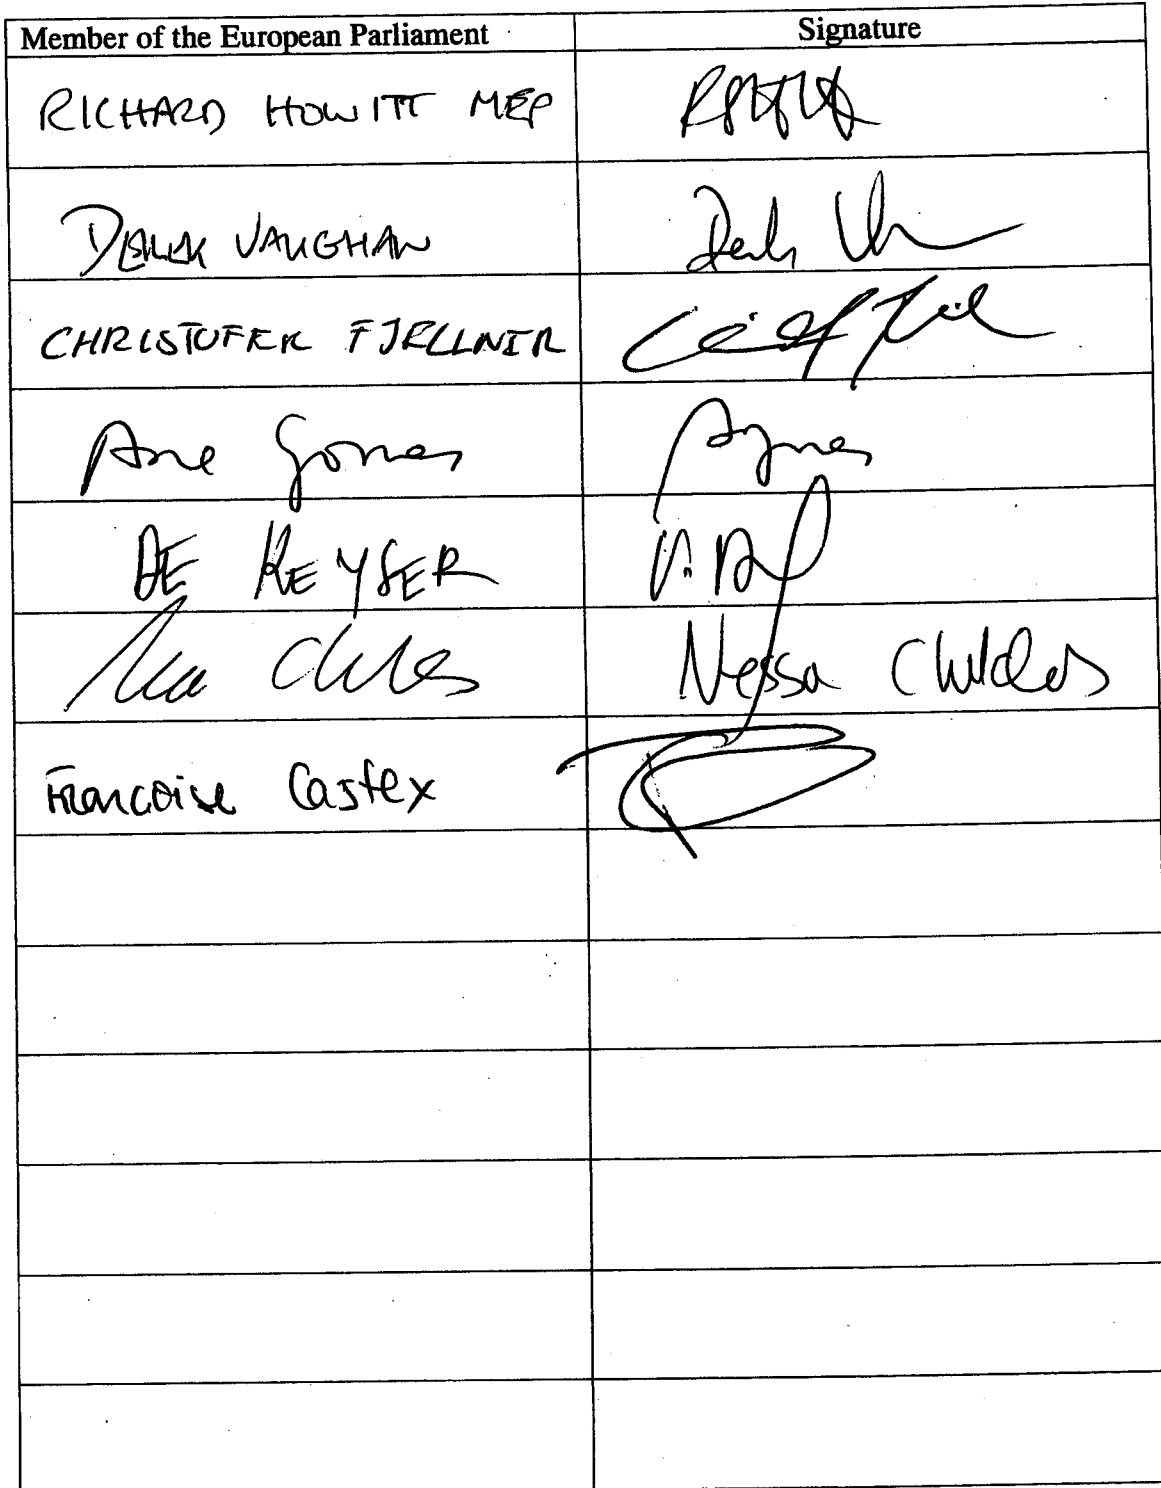 Member of the European Parliament Signature
RICHARD HOWITT MEP
DEREK VAUGHAN Derek
CHRISTOFER FJELLNER
Ana Gomes Agomes
DE KEYSER
Nessa Childers
Françoise Castex